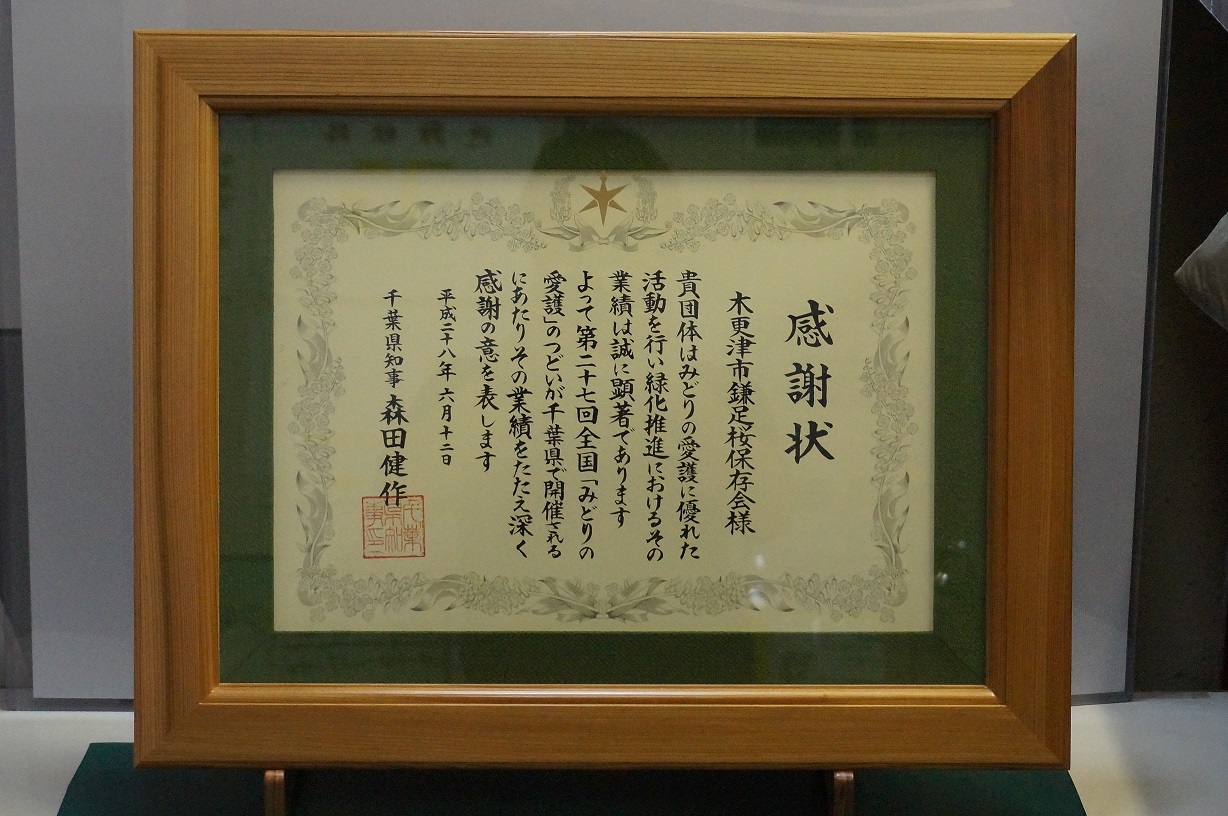 感謝状
木更津市鎌足桜保存会様
貴団体はみどりの愛護に優れた
活動を行い緑化推進におけるその
業績は誠に顕著であります
よって第二十七回全国「みどりの
愛護」のつどいが千葉県で開催される
にあたりその業績をたたえ深く
感謝の意を表します
平成二十八年六月十二日
千葉県知事 森田健作
千葉県知事印